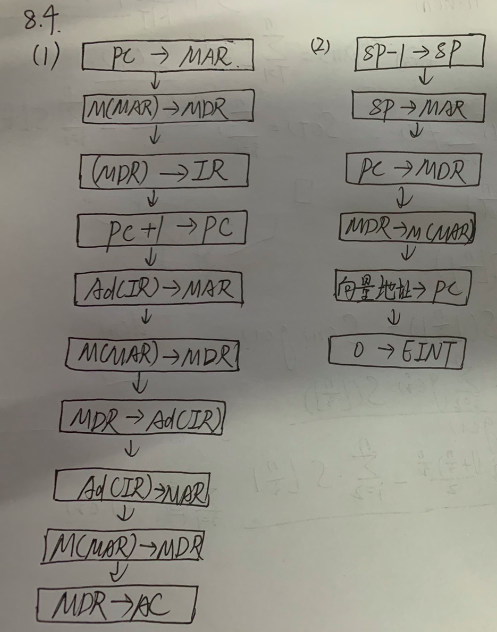 8.4.
(1)
PC → MAR
M(MAR) → MDR
(MDR) → IR
PC+1 → PC
Ad(IR) → MAR
M(MAR) → MDR
MDR → Ad(IR)
Ad(IR) → MAR
M(MAR) → MDR
MDR → AC
(2)
SP-1 → SP
SP → MAR
PC → MDR
MDR → M(MAR)
向量地址 → PC
0 → EINT